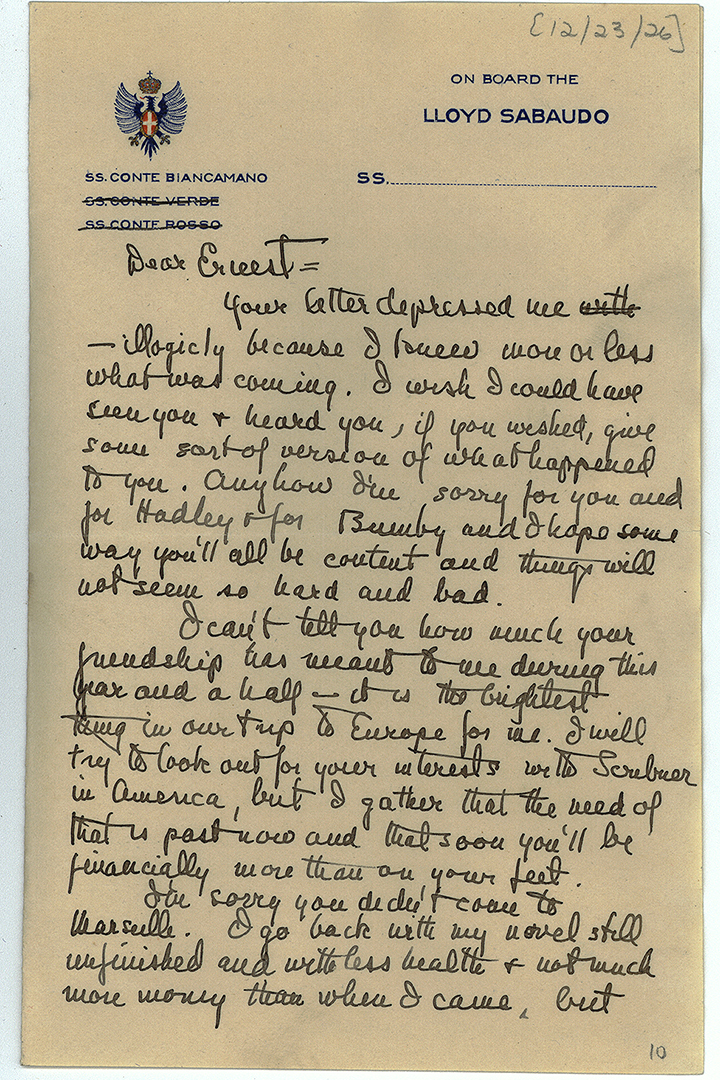 [12/23/26]
ON BOARD THE
LLOYD SABAUDO
SS. CONTE BIANCAMANO
SS. CONTE VERDE
SS. CONTE ROSSO
SS.
Dear Ernest =
Your letter depressed me with
— illogicly because I knew more or less
what was coming. I wish I could have
seen you & heard you, if you wished, give
some sort of version of what happened
to you. Anyhow I'm sorry for you and
for Hadley & for Bumby and I hope some
way you'll all be content and things will
not seem so hard and bad.
I can't tell you how much your
friendship has meant to me during this
year and a half — it is the brightest
thing in our trip to Europe for me. I will
try to look out for your interests with Scribner
in America, but I gather that the need of
that is past now and that soon you'll be
financially more than on your feet.
I'm sorry you didn't come to
Marseille. I go back with my novel still
unfinished and with less health & not much
more money than when I came, but
10